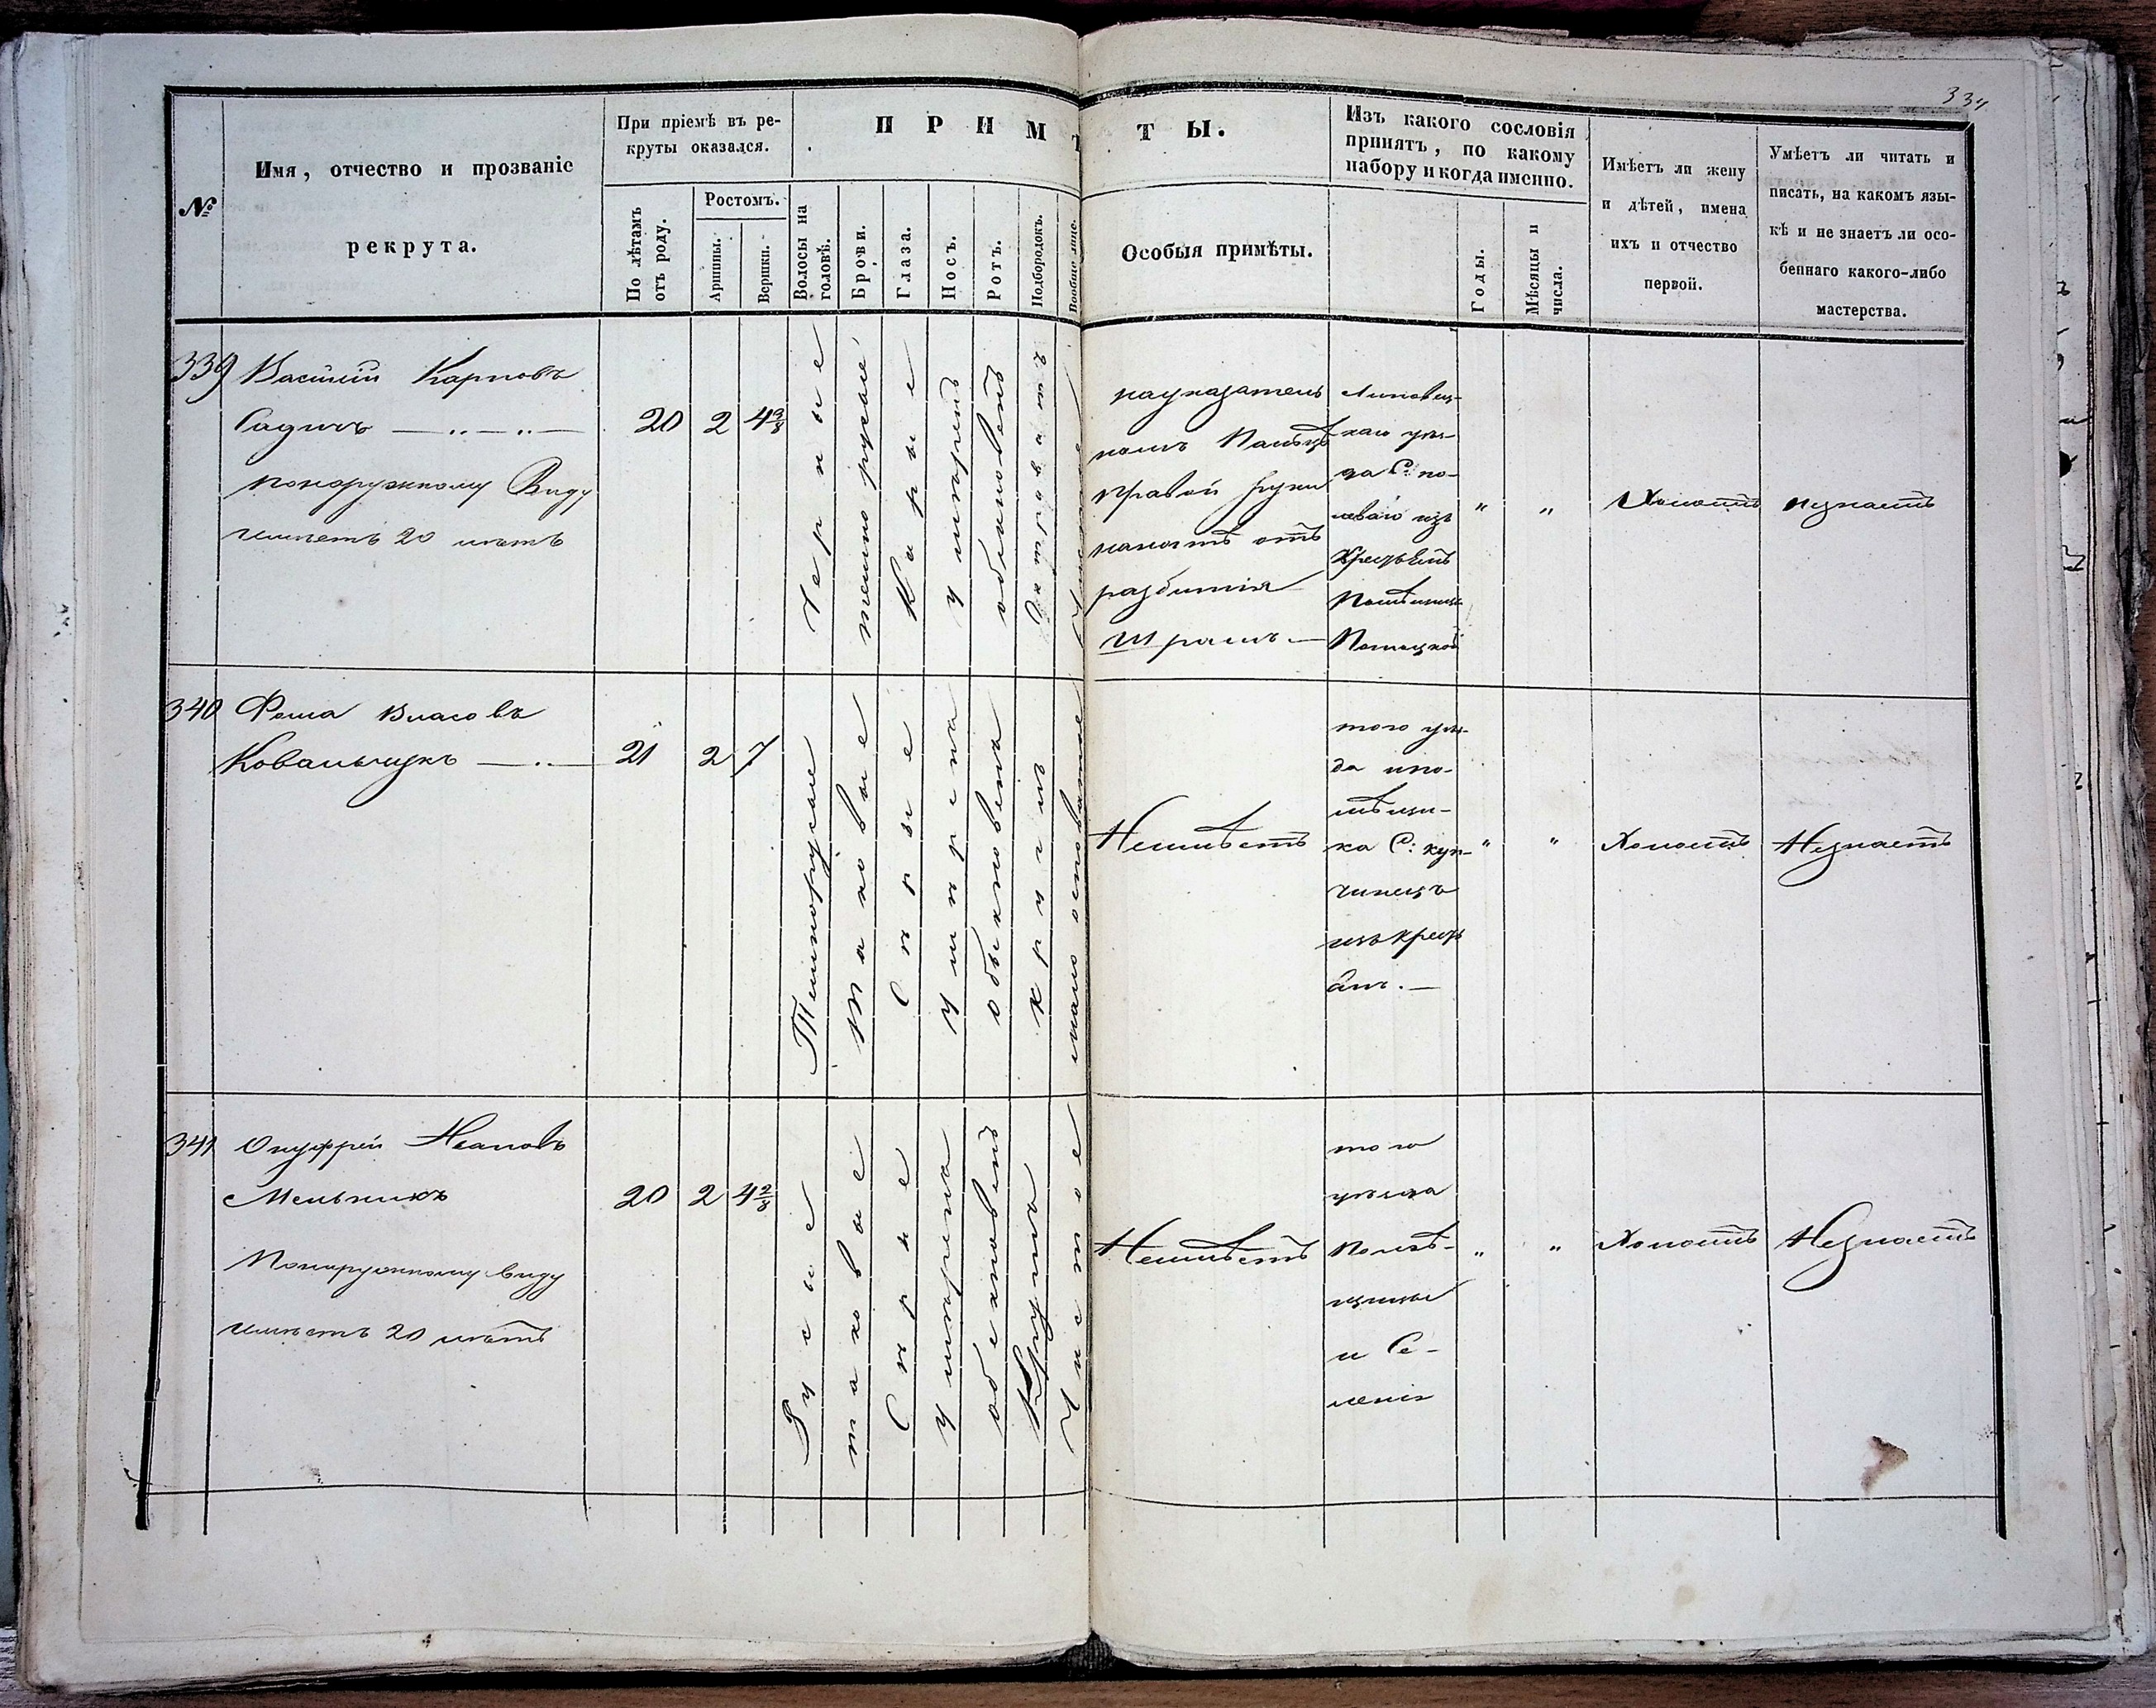 334
№
Имя, отчество и прозваніе
рекрута.
При пріемѣ въ ре-
круты оказался.
По лѣтамъ
отъ роду.
Ростомъ.
Аршины.
Вершки.
П Р И М Ѣ Т Ы.
Волосы на
головѣ.
Брови.
Глаза.
Носъ.
Ротъ.
Подбородокъ.
Вообще лице.
Особыя примѣты.
Изъ какого сословія
принятъ, по какому
набору и когда именно.
Годы.
Мѣсяцы и
числа.
Имѣетъ ли жену
и дѣтей, имена
ихъ и отчество
первой.
Умѣетъ ли читать и
писать, на какомъ язы-
кѣ и не знаетъ ли осо-
беннаго какого-либо
мастерства.
339
Василій Карповъ
Садикъ
понаружному Виду
имѣетъ 20 лѣтъ
20
2
Черные
темнорусые
Каріе
умѣренъ
обыкновенъ
Чистое
на указатель
номъ Пальцѣ
правой руки
ноготь отъ
разбитія
Шрамъ
Липовец-
каго уѣз-
да С:
изъ
Крестьянъ
Помѣщицы
Потоцкой
"
"
Холостъ
незнаетъ
340
Фома Власовъ
Ковальчукъ
21
2
7
Темнорусые
таковые
Сѣрые
умѣрена
обыкновена
круглъ
мало осповатое
Неимѣетъ
того уѣз-
да и по-
мѣщи-
ка С: куп-
чинецъ
изъ крестъ
янъ.
"
"
Холостъ
Незнаетъ
341
Онуфрей Ивановъ
Мельникъ
Понаружному виду
имѣетъ 20 лѣтъ
20
2
4 2/8
Русые
таковые
Сѣрые
умѣрена
обекновенъ
Кругла
Чистое
Неимѣетъ
того
уѣзда
Помѣ-
щицы
и Се-
ленія
"
"
Холостъ
Незнаетъ